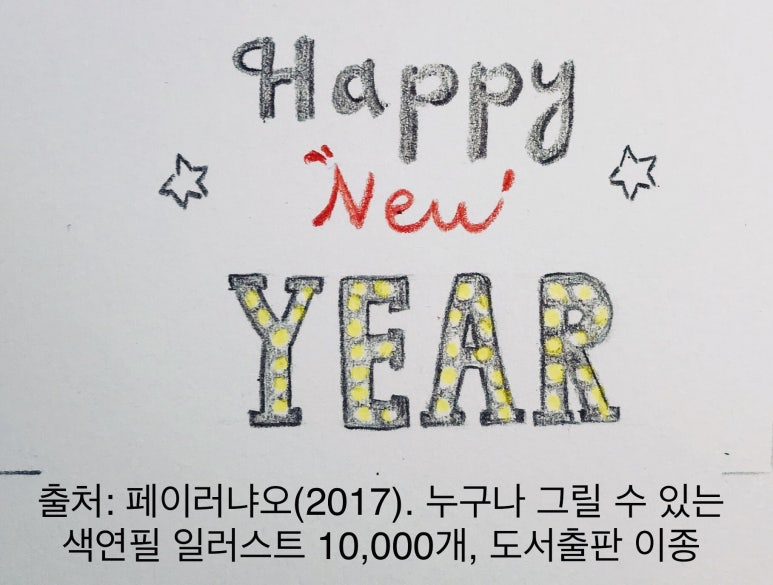 Happy
New
YEAR
출처: 페이러냐오(2017). 누구나 그릴 수 있는
색연필 일러스트 10,000개, 도서출판 이종